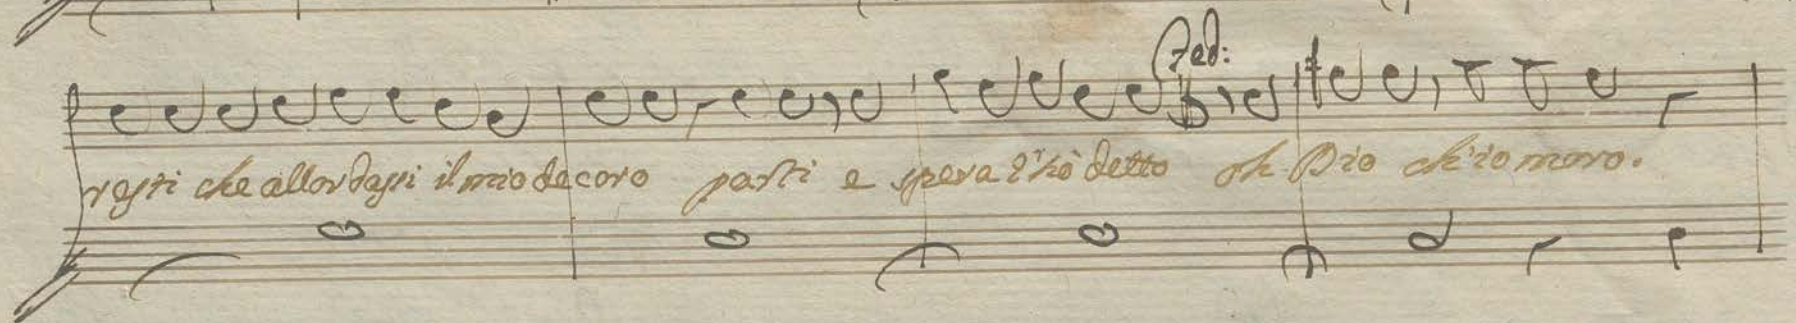 Fed:
resti che allor dassi il mio decoro parti e spera l'hò detto oh Dio ch'io moro.